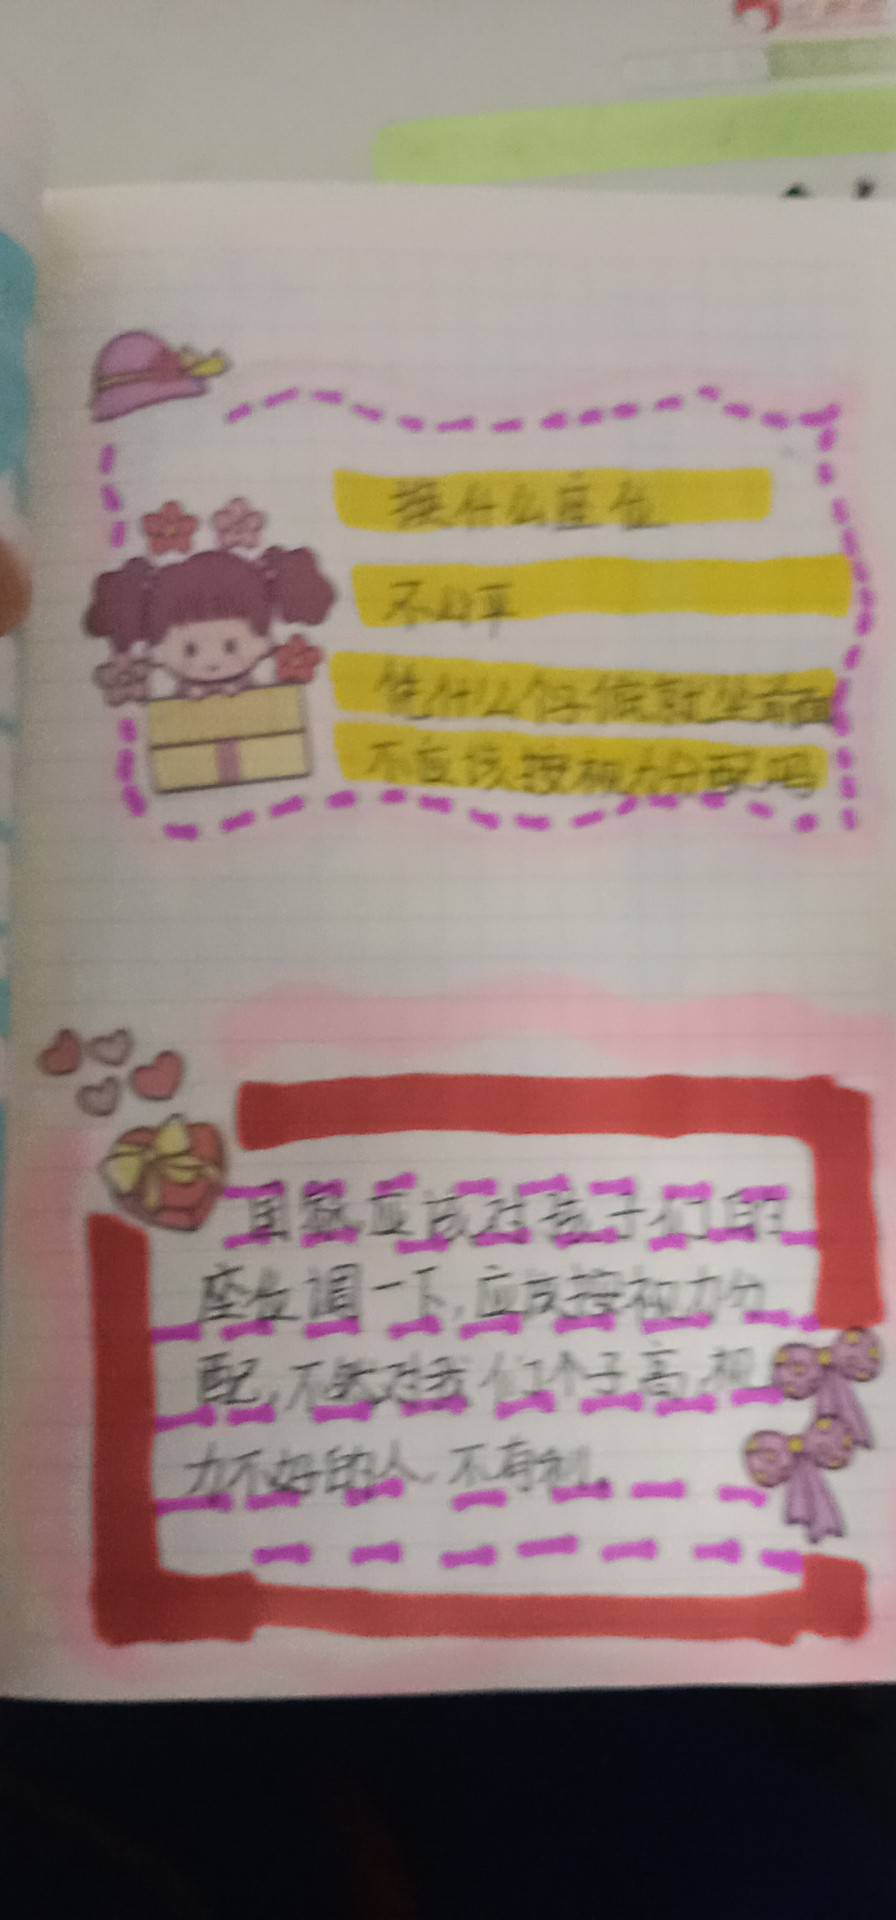 换什么座位
不公平
凭什么个子低就坐前面
不应该按视力分配吗
国家应该对孩子们的
座位调一下,应该按视力分
配,不然对我们个子高,视
力不好的人.不有利。